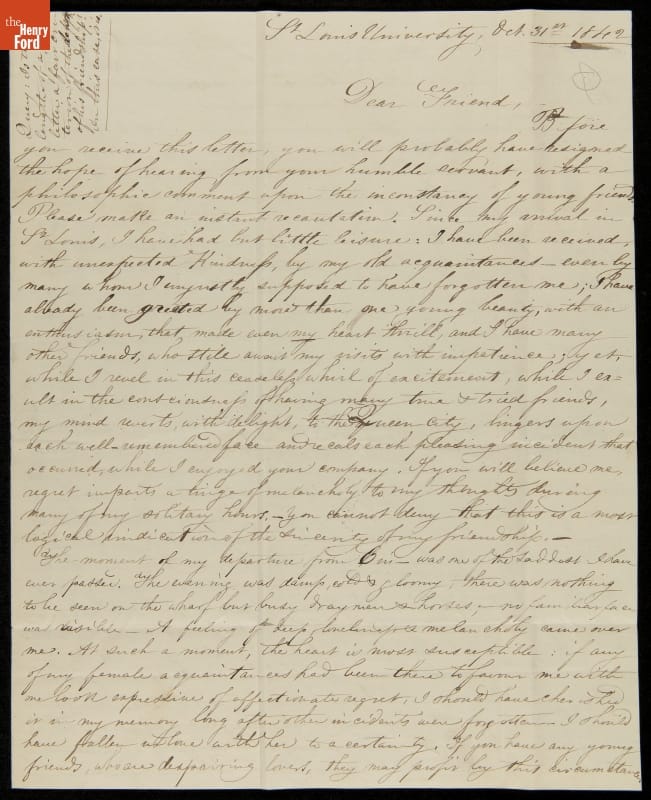 the
Henry
Ford
Query: is the
length of a
letter a fair cri-
terion of the
of his friendship?
In this case it is
St. Louis University, Oct. 31st 1842
Dear Friend,
Before
you receive this letter, you will probably have resigned
the hope of hearing from your humble servant, with a
philosophic comment upon the inconstancy of young friends.
Please make an instant recantation. Since my arrival in
St. Louis, I have had but little leisure: I have been received,
with unexpected kindness, by my old acquaintances — even by
many whom I unjustly supposed to have forgotten me; I have
already been greeted by more than one young beauty, with an
enthusiasm, that made even my heart thrill, and I have many
other friends, who still await my visits with impatience; yet,
while I revel in this ceaseless whirl of excitement, while I ex-
ult in the consciousness of having many true & tried friends,
my mind reverts, with delight, to the Queen City, lingers upon
each well-remembered face and recals each pleasing incident that
occurred, while I enjoyed your company. If you will believe me,
regret imparts a tinge of melancholy to my thoughts during
many of my solitary hours. — You cannot deny that this is a most
logical vindication of the sincerity of my friendship. —
The moment of my departure from Cin — was one of the saddest I have
ever passed. The evening was damp, cold & gloomy; there was nothing
to be seen on the wharf but busy draymen & horses — no familiar face
was visible — A feeling of deep loneliness & melancholy came over
me. At such a moment, the heart is most susceptible: if any
of my female acquaintances had been there to favour me with
one look expressive of affectionate regret, I should have cherished
it in my memory long after other incidents were forgotten — I should
have fallen in love with her to a certainty. If you have any young
friends, who are despairing lovers, they may profit by this circumstance.